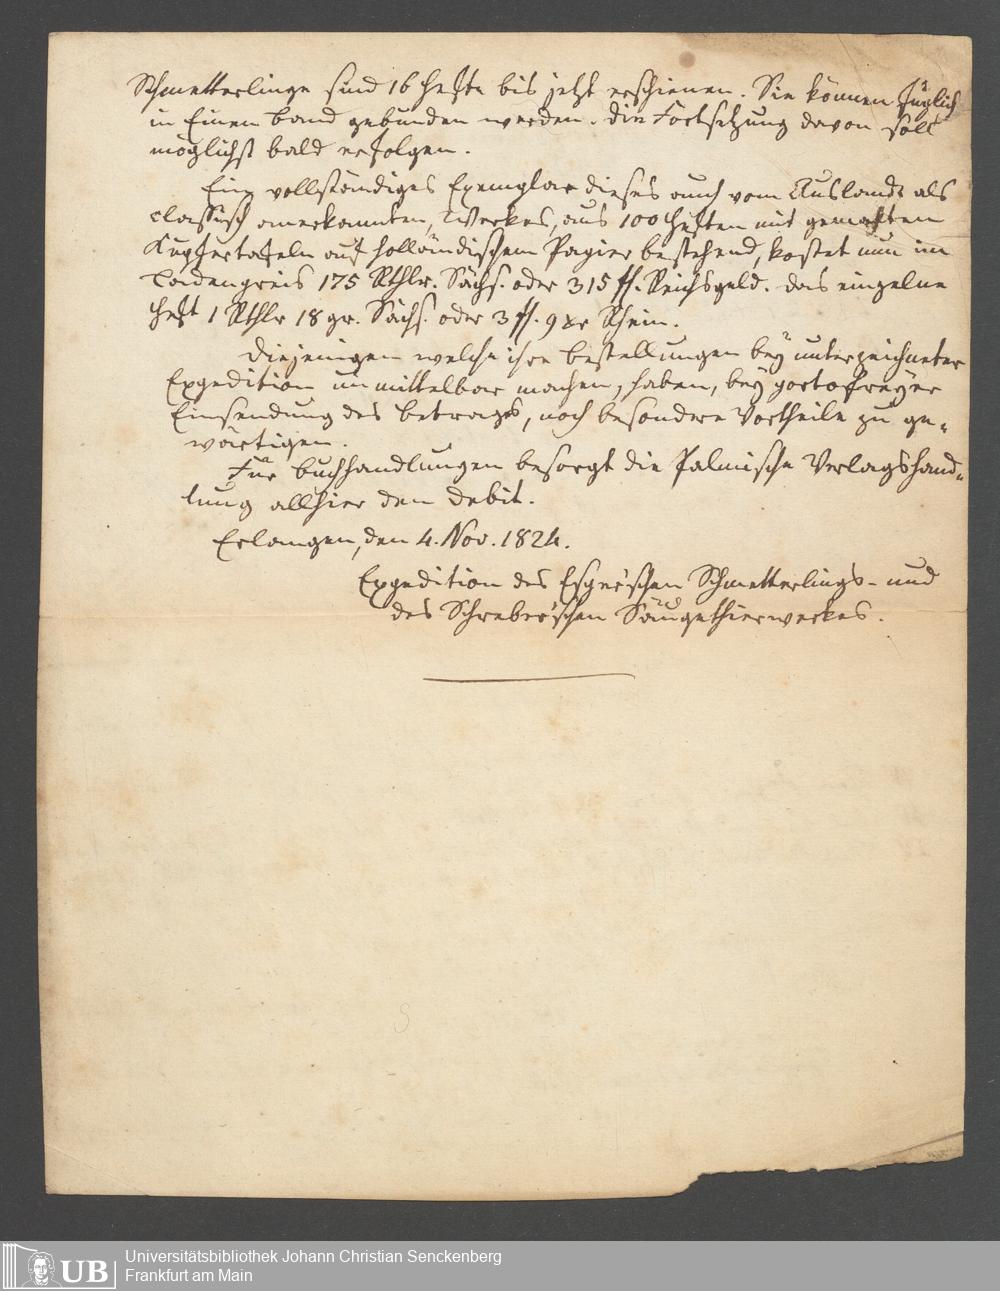 Schmetterlinge sind 16 Hefte bis jetzt erschienen. Sie können füglich
in Einen Band gebunden werden. Die Fortsetzung davon soll
möglichst bald erfolgen.
Ein vollständiges Exemplar dieses auch vom Auslande als
classisch anerkannten Werkes, aus 100 Heften mit gemahlten
Kupfertafeln auf holländischem Papier bestehend, kostet nun im
Ladenpreis 175 Rthlr. Sächs. oder 315 fl. Reichsgeld. das einzelne
Heft 1 Rthlr 18 gr. Sächs. oder 3 fl. 9 xr Rhein.
Diejenigen welche ihre Bestellungen bey unterzeichneter
Expedition unmittelbar machen, haben, bey portofreyer
Einsendung des Betrages, noch besondere Vortheile zu ge-
wärtigen.
Für Buchhandlungen besorgt die Palmische Verlagshand-
lung allhier den Debit.
Erlangen, den 4. Nov. 1824.
Expedition des Esper'schen Schmetterlings- und
des Schreber'schen Säugethierwerkes.
UB
Universitätsbibliothek Johann Christian Senckenberg
Frankfurt am Main